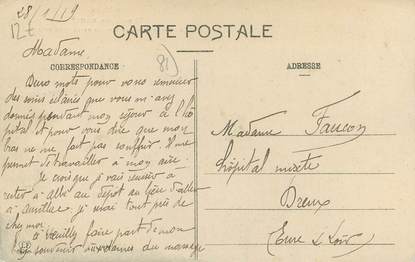 28/1/19
12 t
CARTE POSTALE
Madame
CORRESPONDANCE
81)
ADRESSE
Deux mots pour vous remercier
des soins éclairés que vous m'avez
donnés pendant mon séjour à l'hô
pital et pour vous dire que mon
bras ne me fait pas souffrir. Il me
permet de travailler à mon aise.
Je crois que je vais réussir à
rester à albi au dépôt du
à aurillac. je serai tout près de
chez moi.
Veuillez faire part de mon
bon souvenir aux dames du
Madame Faucon
hôpital mixte
Dreux
Eure & Loir